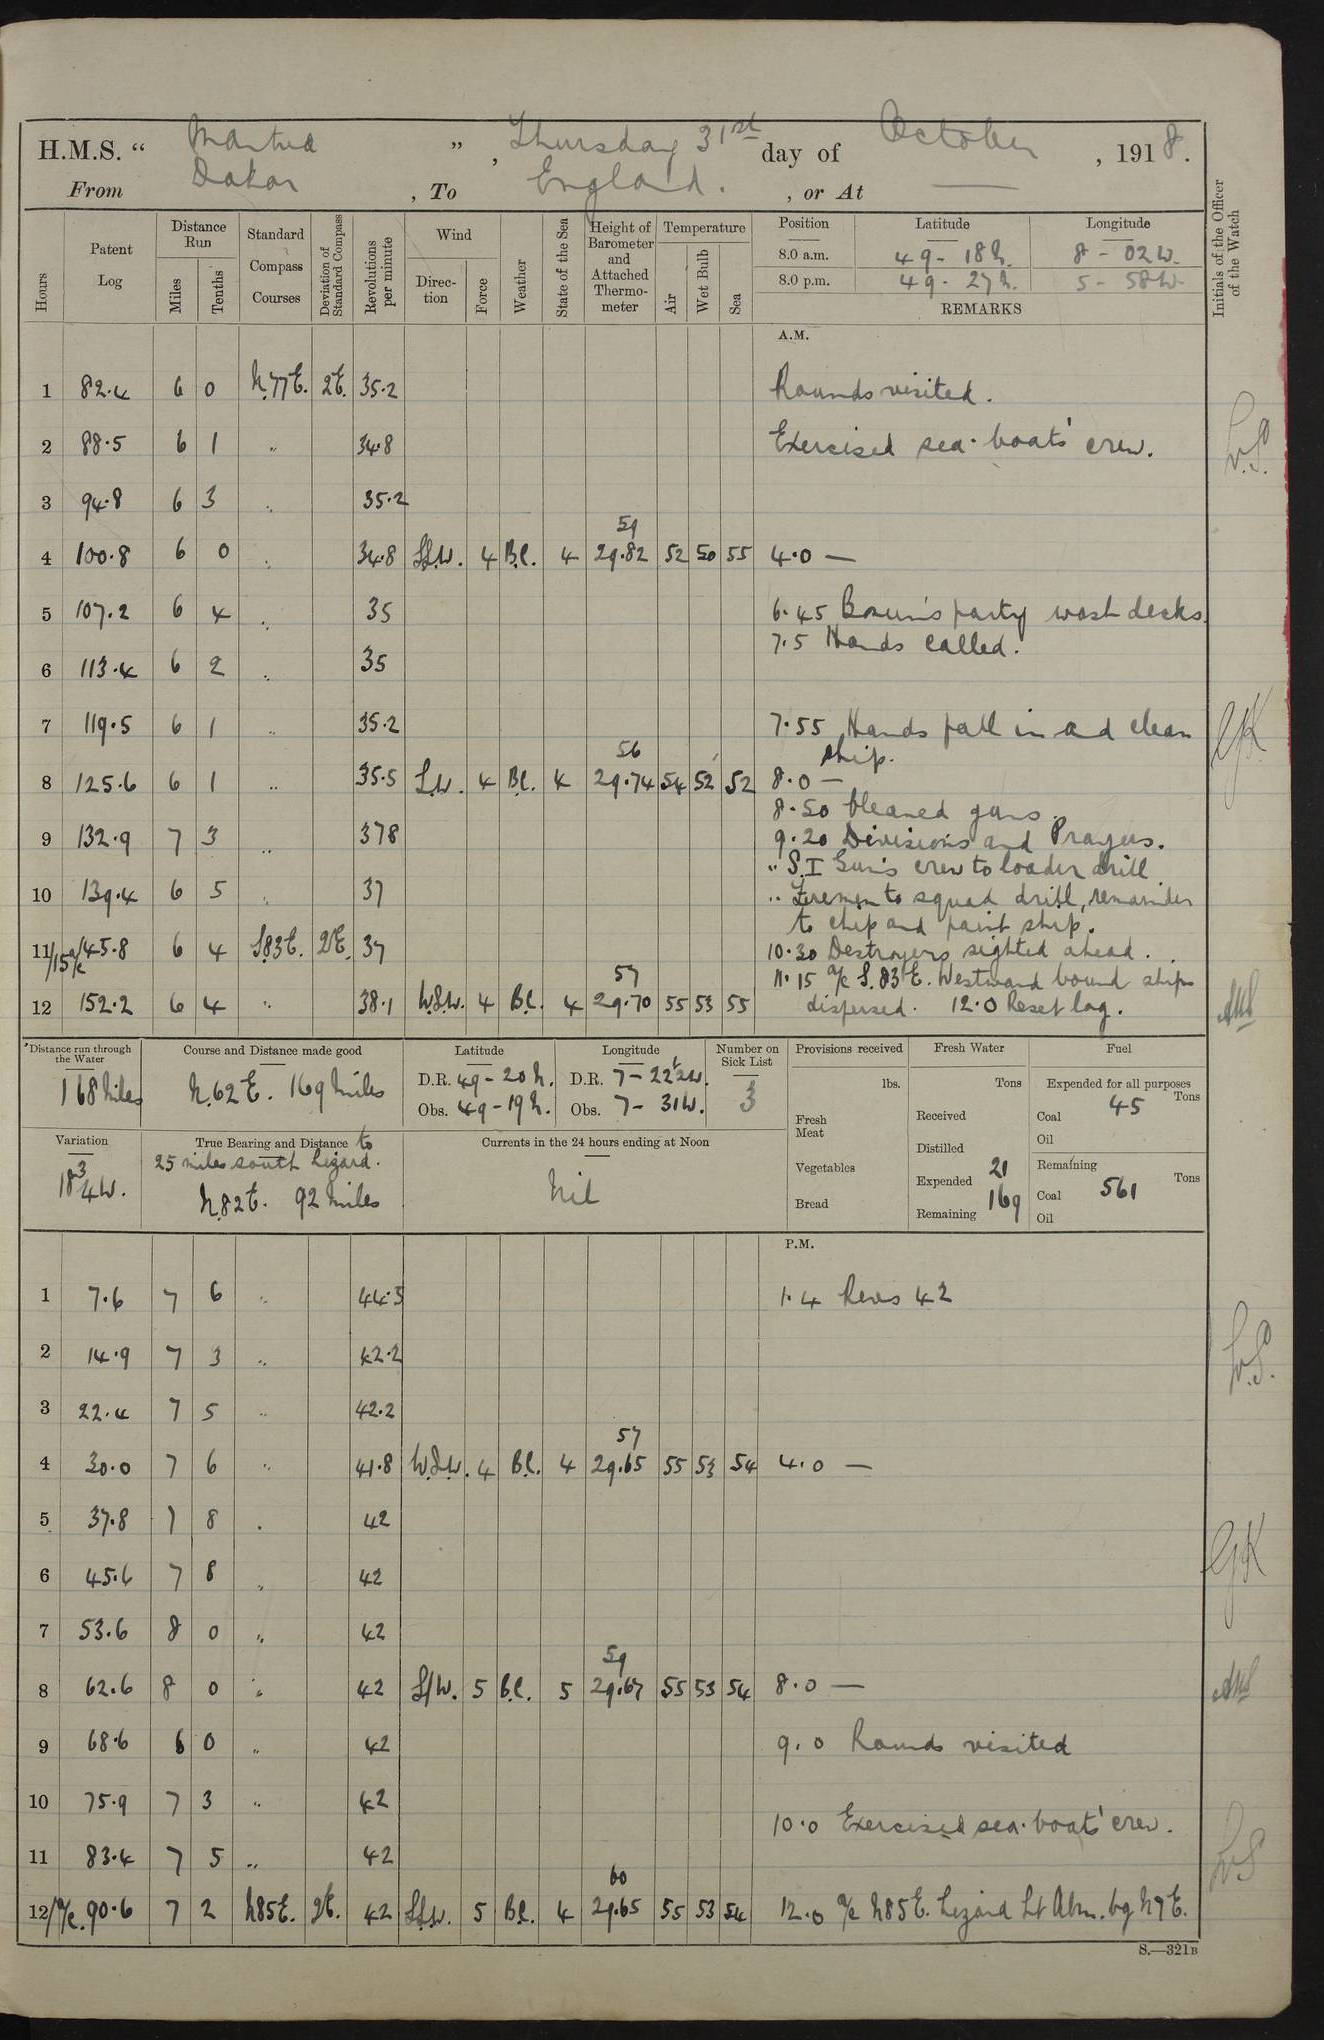 H.M.S. “ Mantua ” , Thursday 31st day of October , 1918.
From Dakar , To England. , or At —
Hours
Patent Log
Distance Run
Miles
Tenths
Standard Compass Courses
Deviation of Standard Compass
Revolutions per minute
Wind
Direction
Force
Weather
State of the Sea
Height of Barometer and Attached Thermometer
Temperature
Air
Wet Bulb
Sea
Position Latitude Longitude
8.0 a.m. 49 - 18 N. 8 - 02 W.
8.0 p.m. 49 - 27 N. 5 - 58 W.
REMARKS
Initials of the Officer of the Watch
A.M.
1 82.4 6 0 N.77E. 2E. 35.2 Rounds visited.
2 88.5 6 1 " 34.8 Exercised sea-boats' crew.
3 94.8 6 3 " 35.2
59
4 100.8 6 0 " 34.8 S.S.W. 4 B.C. 4 29.82 52 50 55 4.0 —
5 107.2 6 4 " 35 6.45 Bosun's party wash decks.
7.5 Hands called.
6 113.4 6 2 " 35
7 119.5 6 1 " 35.2 7.55 Hands fall in and clean
56 ship.
8 125.6 6 1 " 35.5 S.W. 4 B.C. 4 29.74 54 52 52 8.0 —
8.50 Cleaned guns.
9 132.9 7 3 " 37.8 9.20 Divisions and Prayers.
" S.I Gun's crew to loader drill
10 139.4 6 5 " 37 " Firemen to squad drill, remainder
to chip and paint ship.
11/15 a/c 145.8 6 4 S.83E. 2E. 37 10.30 Destroyers sighted ahead.
57 11.15 a/c S.83E. Westward bound ships
12 152.2 6 4 " 38.1 W.S.W. 4 B.C. 4 29.70 55 53 55 dispersed. 12.0 Reset log.
Distance run through the Water
168 Miles
Course and Distance made good
N.62E. 169 Miles
Latitude
D.R. 49 - 20 N.
Obs. 49 - 19 N.
Longitude
D.R. 7 - 22½ W.
Obs. 7 - 31 W.
Number on Sick List
3
Provisions received
lbs.
Fresh Meat
Vegetables
Bread
Fresh Water
Tons
Received
Distilled
Expended 21
Remaining 169
Fuel
Expended for all purposes
Tons
Coal 45
Oil
Remaining
Tons
Coal 561
Oil
Variation
18¾W.
True Bearing and Distance to
25 miles south Lizard.
N.82E. 92 Miles
Currents in the 24 hours ending at Noon
Nil
P.M.
1 7.6 7 6 " 44.3 1.4 Revs 42
2 14.9 7 3 " 42.2
3 22.4 7 5 " 42.2
57
4 30.0 7 6 " 41.8 W.S.W. 4 B.C. 4 29.65 55 53 54 4.0 —
5 37.8 7 8 " 42
6 45.6 7 8 " 42
7 53.6 8 0 " 42
59
8 62.6 8 0 " 42 S/W. 5 B.C. 5 29.67 55 53 54 8.0 —
9 68.6 6 0 " 42 9.0 Rounds visited
10 75.9 7 3 " 42
10.0 Exercised sea-boats' crew.
11 83.4 7 5 " 42
60
12/a/c. 90.6 7 2 N85E. 2E. 42 S.S.W. 5 B.C. 4 29.65 55 53 54 12.0 a/c N85E. Lizard Lt Abm. bg N7E.
S.—321B